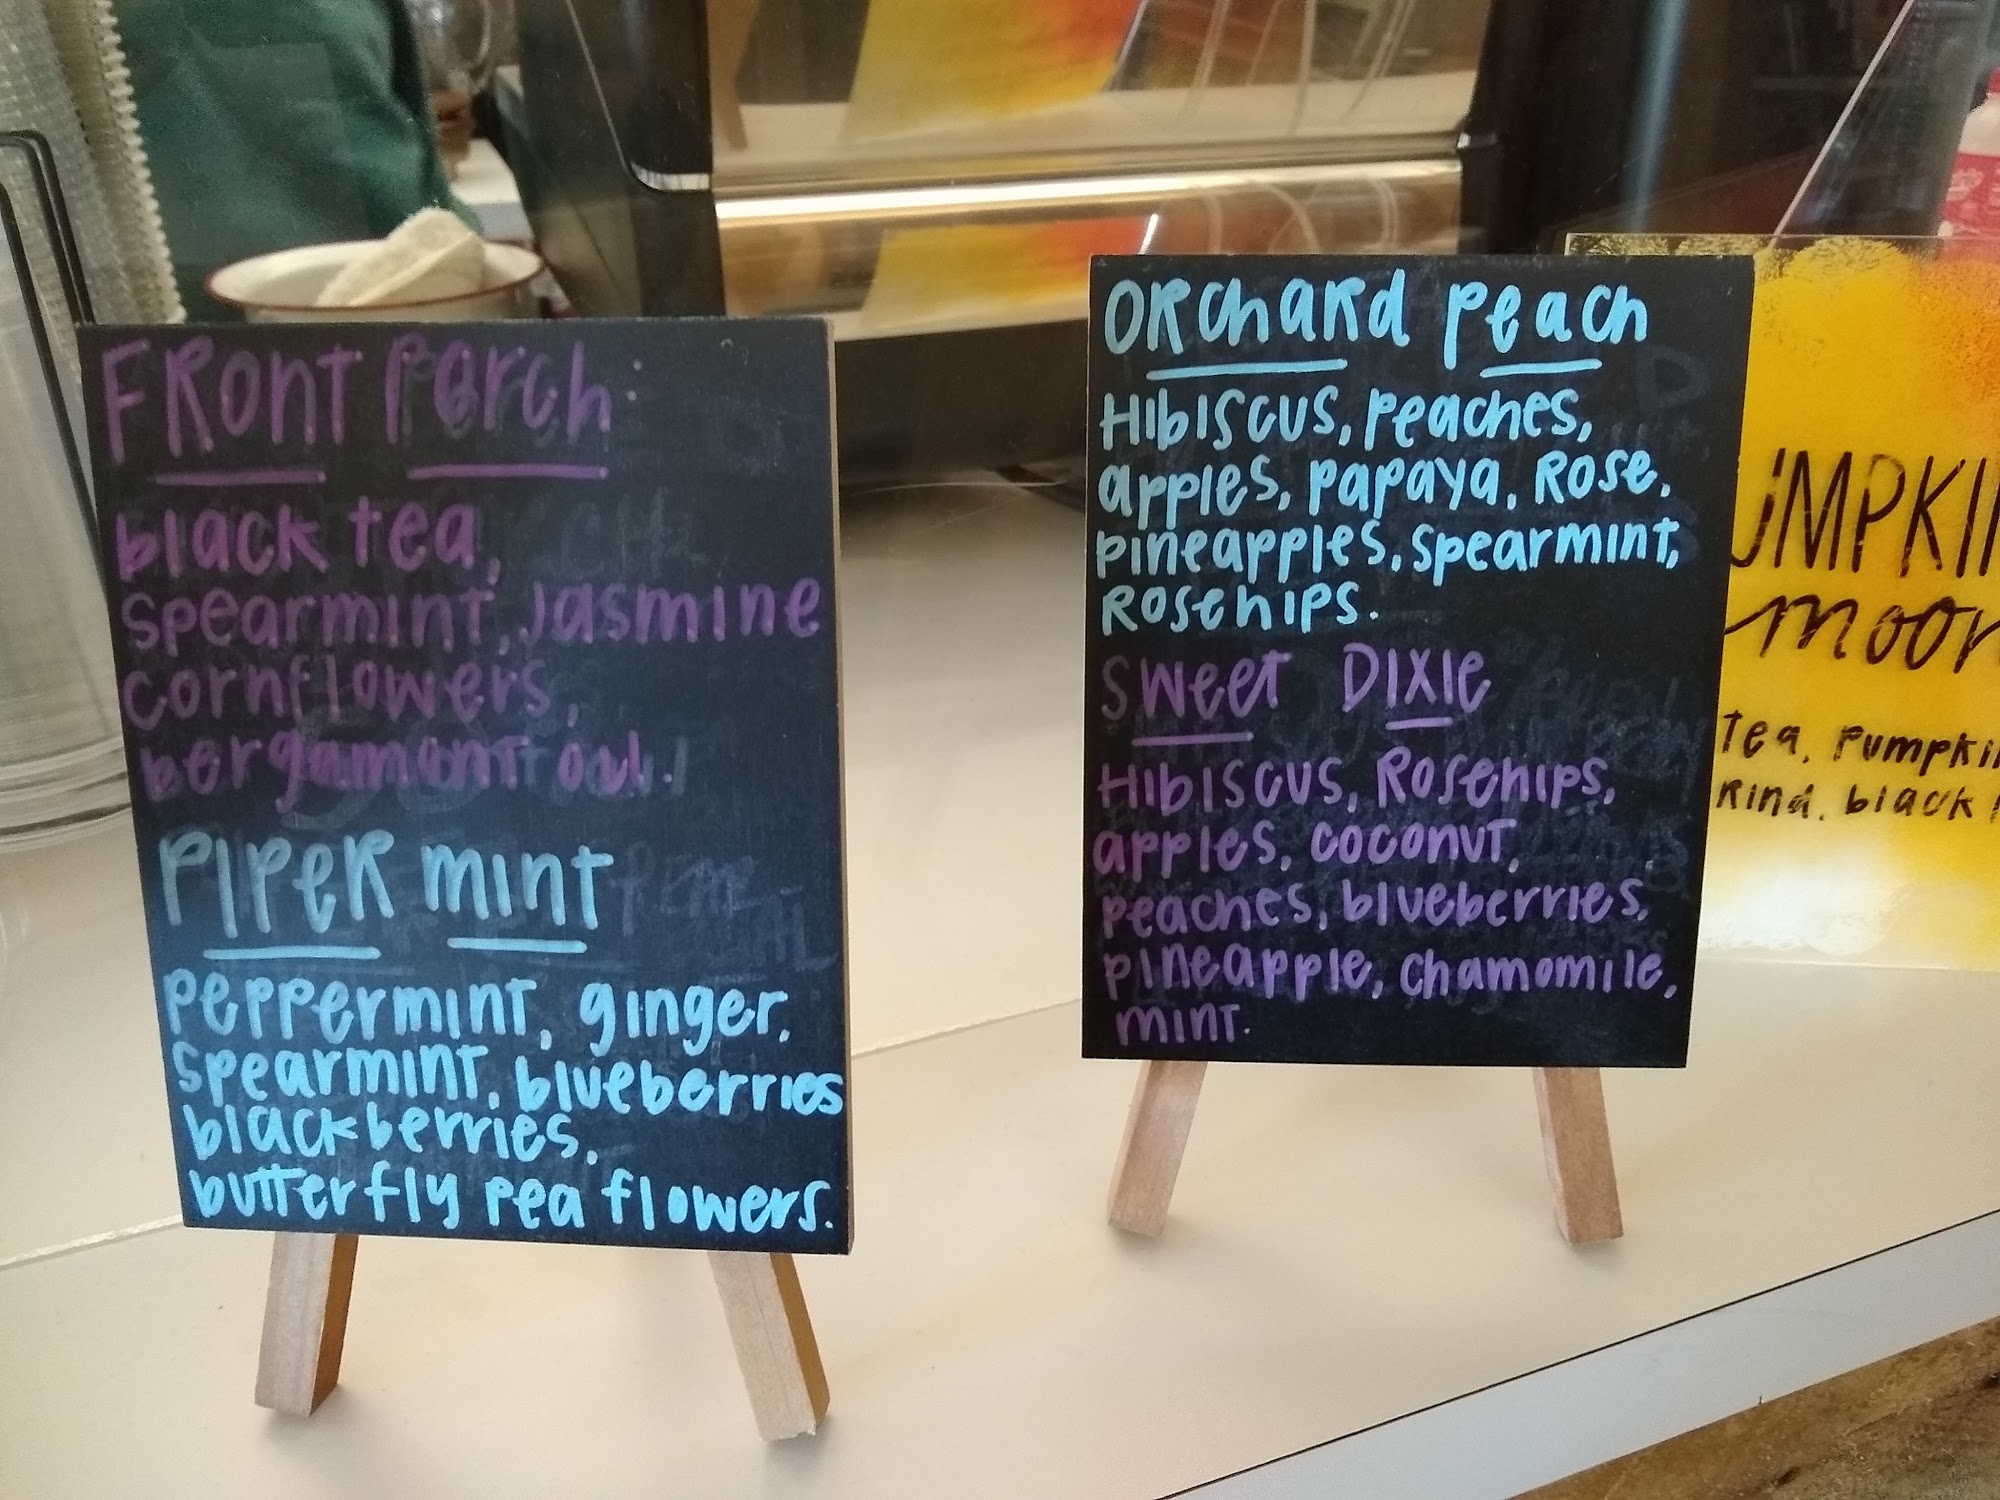 Front Porch
black tea,
spearmint, jasmine
cornflowers,
bergamont oil.
PIPER mint
peppermint, ginger,
spearmint, blueberries
blackberries,
butterfly pea flowers.
Orchard peach
Hibiscus, peaches,
apples, papaya, Rose,
pineapples, spearmint,
Rosehips.
Sweet Dixie
Hibiscus, Rosehips,
apples, coconut,
peaches, blueberries,
pineapple, chamomile,
mint.
UMPKIN
moon
Tea, Pumpkin
Rind, black